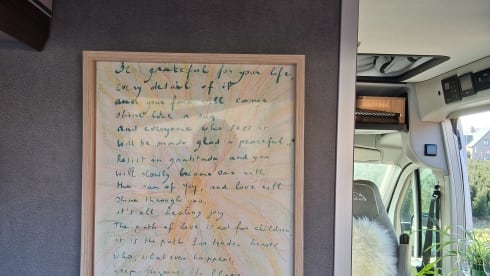 Be grateful for your life,
every detail of it
and your face will come
shine like a sun
and everyone who sees it
will be made glad & peaceful.
Resist in gratitude and you
will slowly become one with
the sun of joy, and love will
shine through you,
it's all healing joy
The path of love is not for children
it is the path for tender hearts
who, what ever happens,
keep